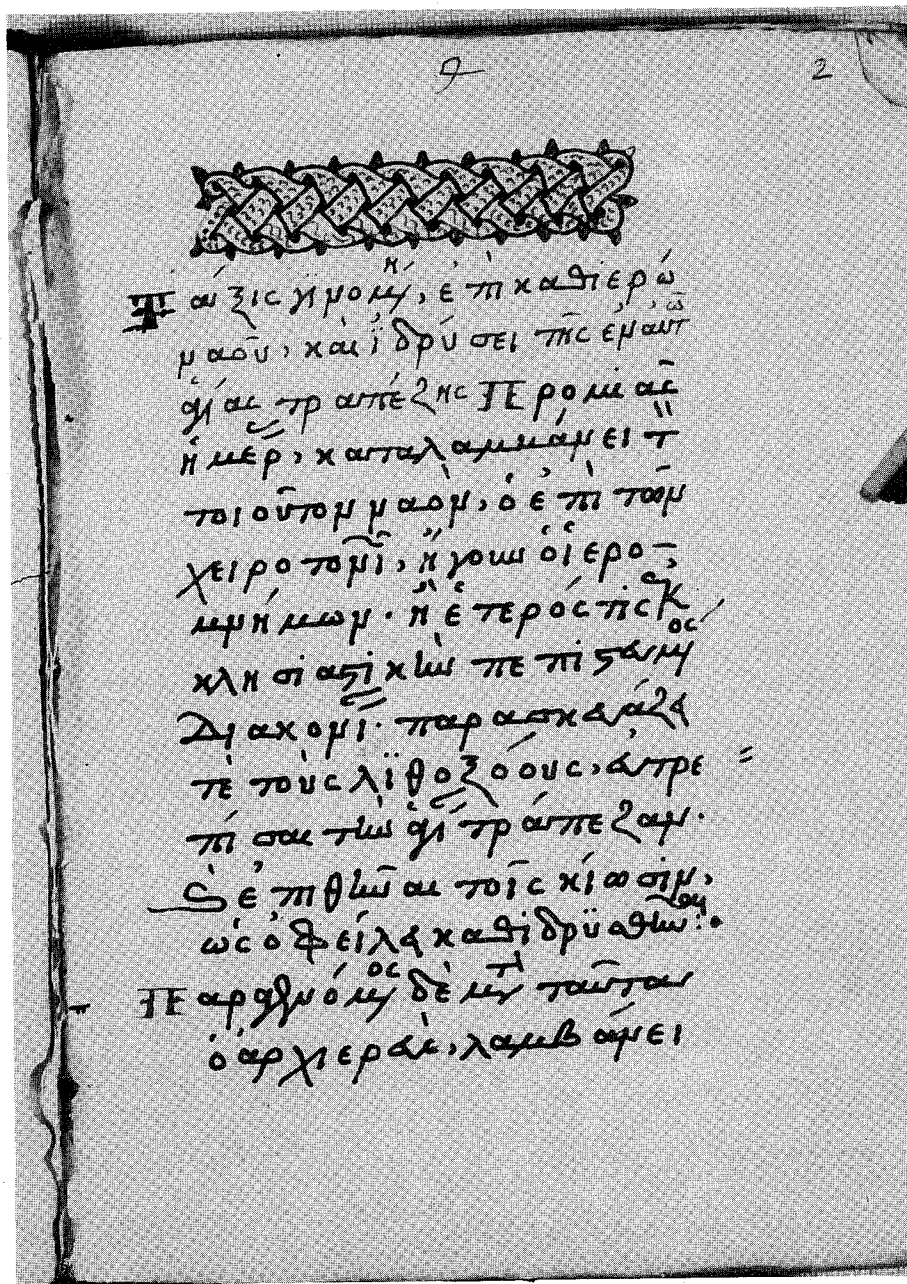 2
Τάξις γινομένη, ἐπὶ καθιερώ
ναοῦ, καὶ ἱδρύσει τῆς ἐν αὐτῶ
ἁγίας τραπέζης Προ μιᾶς
ἡμέρ, καταλαμβάνει τ
τοιοῦτον ναὸν, ὁ ἐπὶ τῶν
χειροτονι, ἤγουν ὁ ἱερο
μνήμων. ἢ ἕτερός τις ἐκ
κλησιαστικὴν πεπιστευμένος
Διακονί. παρασκευάζει
τὲ τοὺς λϊθοξόους, εὐτρε
πίσαι τὴν ἁγί τράπεζαν.
Ὡς ἐπιθεῖναι τοῖς κίοσιν,
ὡς ὀφείλει καθιδρυθῆναι:
Παραγενόμενος δὲ μετὰ ταῦτα
ὁ ἀρχιερεὺς, λαμβάνει